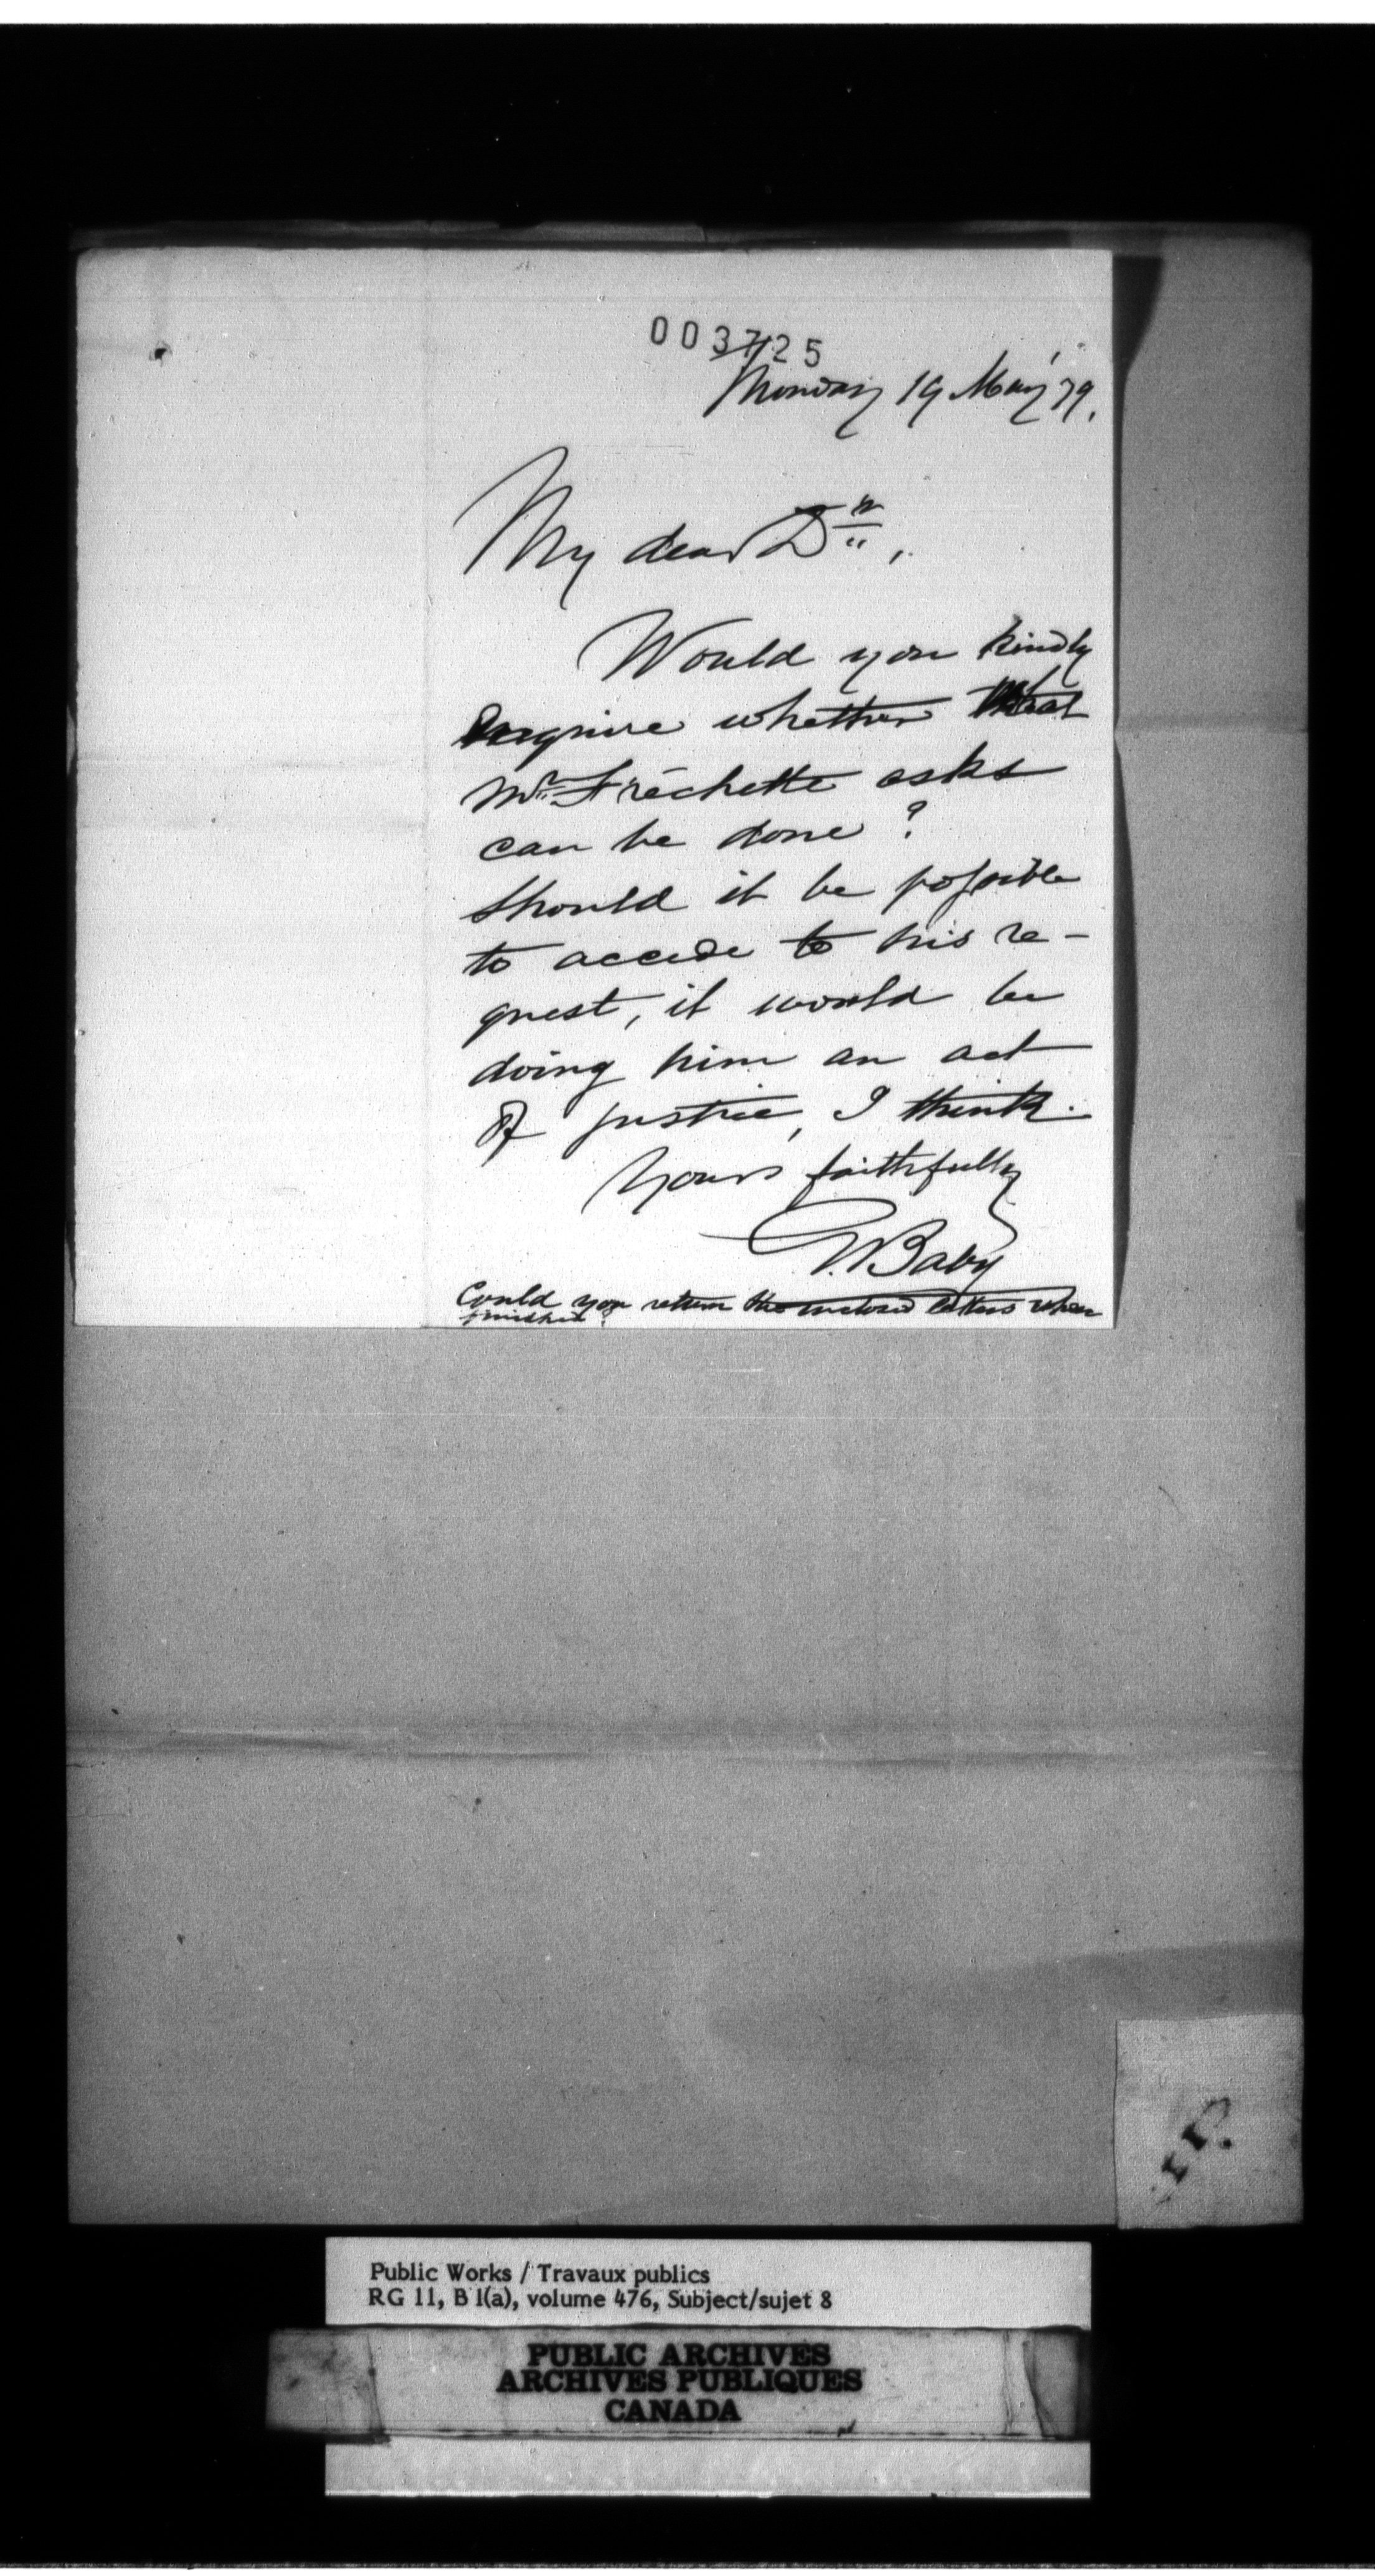 003725
Monday 19 May '79.
My dear Dr.,
Would you kindly
enquire whether what
Mr. Fréchette asks
can be done?
Should it be possible
to accede to his re-
quest, it would be
doing him an act
of justice, I think.
Yours faithfully
G. Baby
Could you return the enclosed letters when
finished?
Public Works / Travaux publics
RG 11, B 1(a), volume 476, Subject/sujet 8
PUBLIC ARCHIVES
ARCHIVES PUBLIQUES
CANADA